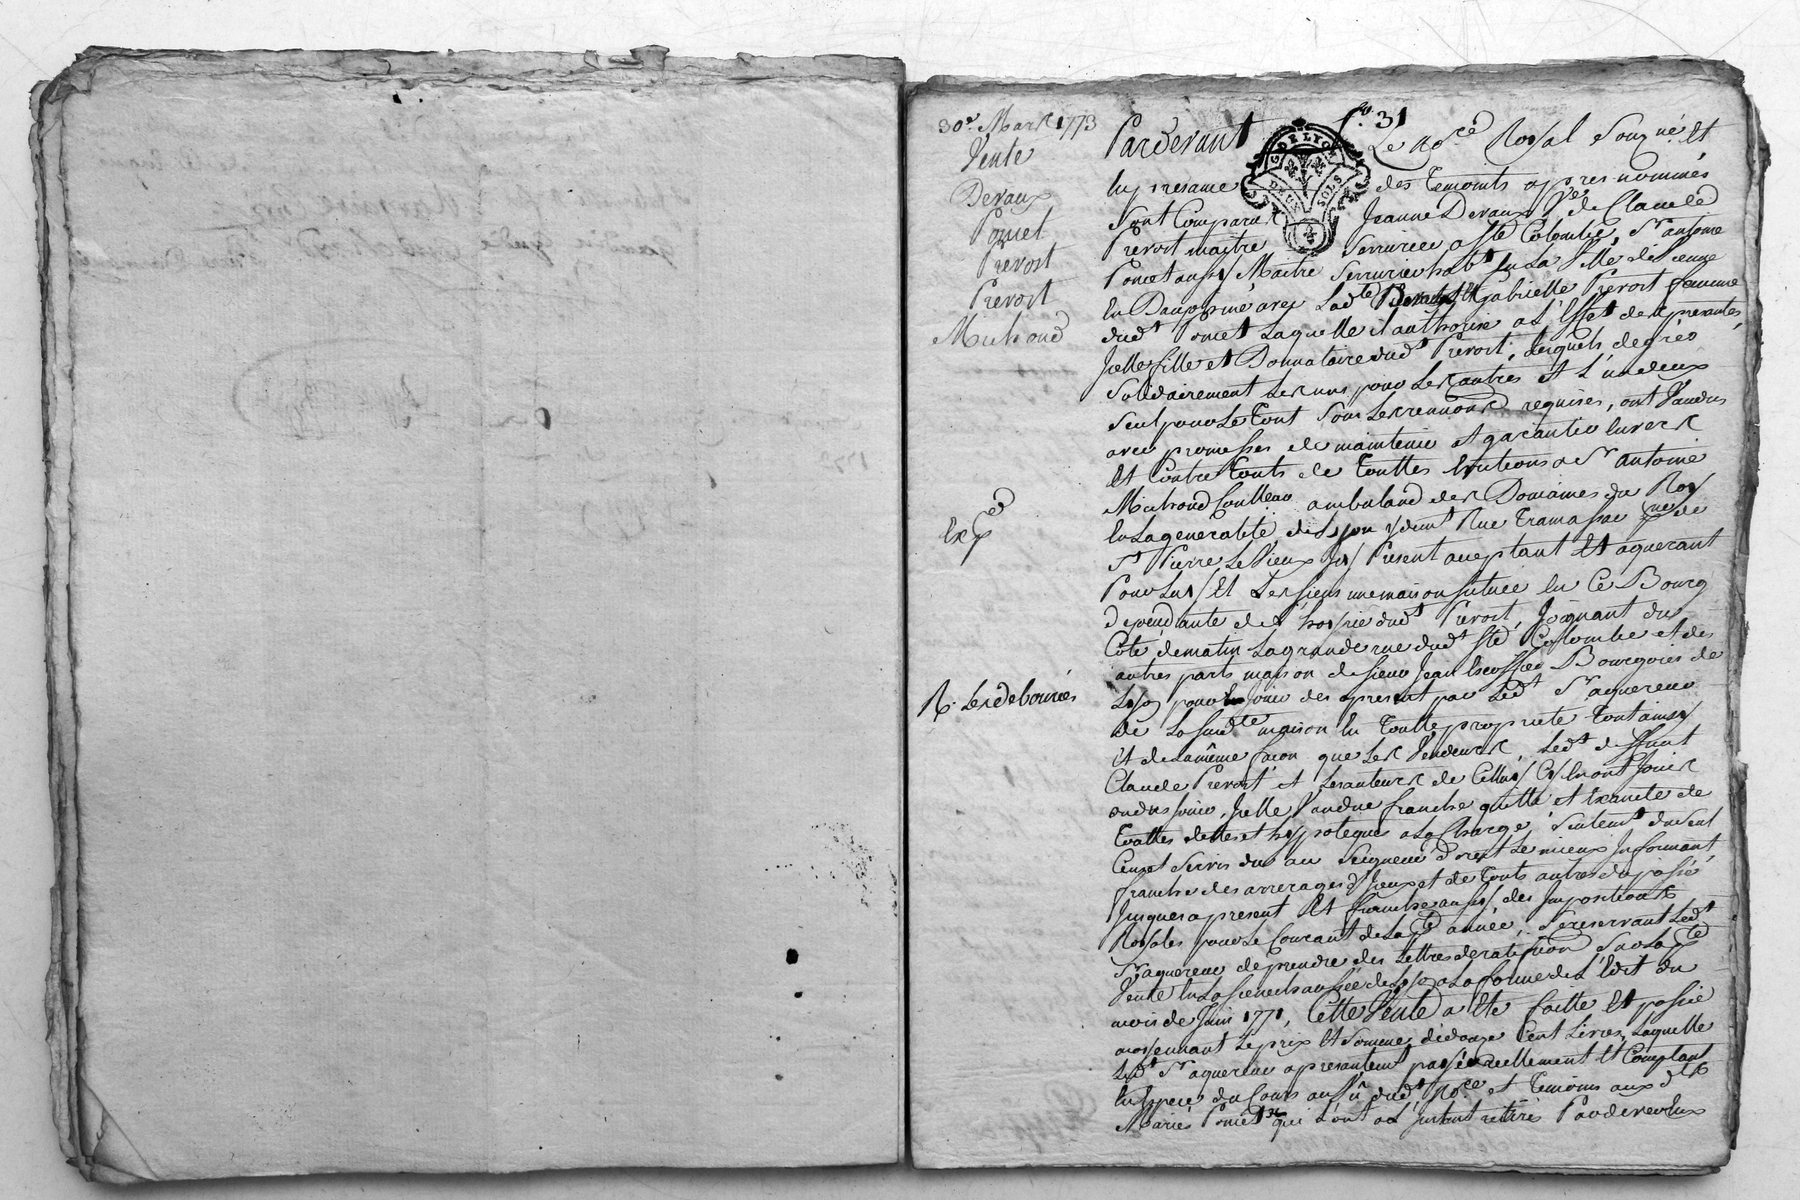 30e. Mars 1773
Vente
Devaux
Poncet
Prevost
Prevost
Michoud
Exp
R. Les debources
fo. 31
G. DE LYON
DEUX SOLS
Pardevant Le no.re Royal Sousné. Et
En presance des temoints apres nommés
Sont Comparus Jeanne Devaux Vve de Claude
Prevost maitre Serrurier a Ste Colombe, Sr antoine
Poncet aussy Maitre Serrurier habt En La Ville de Vienne
En Dauphiné avec Ladte Gabrielle Prevost femme
dudt Poncet Laquelle il authorise a L'Effet des presantes,
Icelle fille et Donnataire dudt Prevost, Lesquels de gré
Solidairement Les uns pour Les autres Et L'un deux
Seul pour Le Tout Sous Les renions requises, ont Vandus
avec promesses de maintenir et garantir Envers
Et Contre Touts de Touttes a Sr antoine
Michoud ambuland des Domaines du Roy
En La generalité de Lyon y demt Rue Tramassac
St Pierre Le Vieux Icy Present aceptant Et aquerant
Pour Luy Et Les siens une maison scituée En Ce Bourg
dependante de L'hoirie dudt Prevost, Joignant du
Coté de matin La grande rue dudt Ste Colombe et des
autres parts maison de sieur Jean Bourgois de
Lyon pour En Jouir des apresent par Ledt Sr aquereur
de La sudte maison En Toutte proprieté Tout ainsy
Et de la même façon que Les Vendeurs, Ledt deffunt
Claude Prevost et Les auteurs de Celluy Cy En ont Jouis
ou dus Jouir, Icelle Vandue franche quitte et Exampte de
Touttes dettes et hypoteques a La Charge, Seulemt du seul
Cens et Servis du au Seigneur direct Le mieux Informant
franche des arrerages D'Iceux et de Touts autres du passé
Jusques apresent Et franche aussy des Impositions
Royales pour Le Courant de La pte année, Se reservant Ledt
Sr aquereur de prendre des Lettres de ratifion Sur La pte
Vente En La Senechaussée de Lyon a La forme de L'Edit du
mois de Juin 1771, Cette Vente a Eté faitte Et passée
moyennant Le prix Et Somme de douze Cent Livres, Laquelle
Ledt Sr aquereur a presantemt payée reellement Et Comptant
En Especes du Cours au Vû dudt No.re et Temoins aux dts
Mariés Poncet qui L'ont a L'instant retirés Pardevers Eux